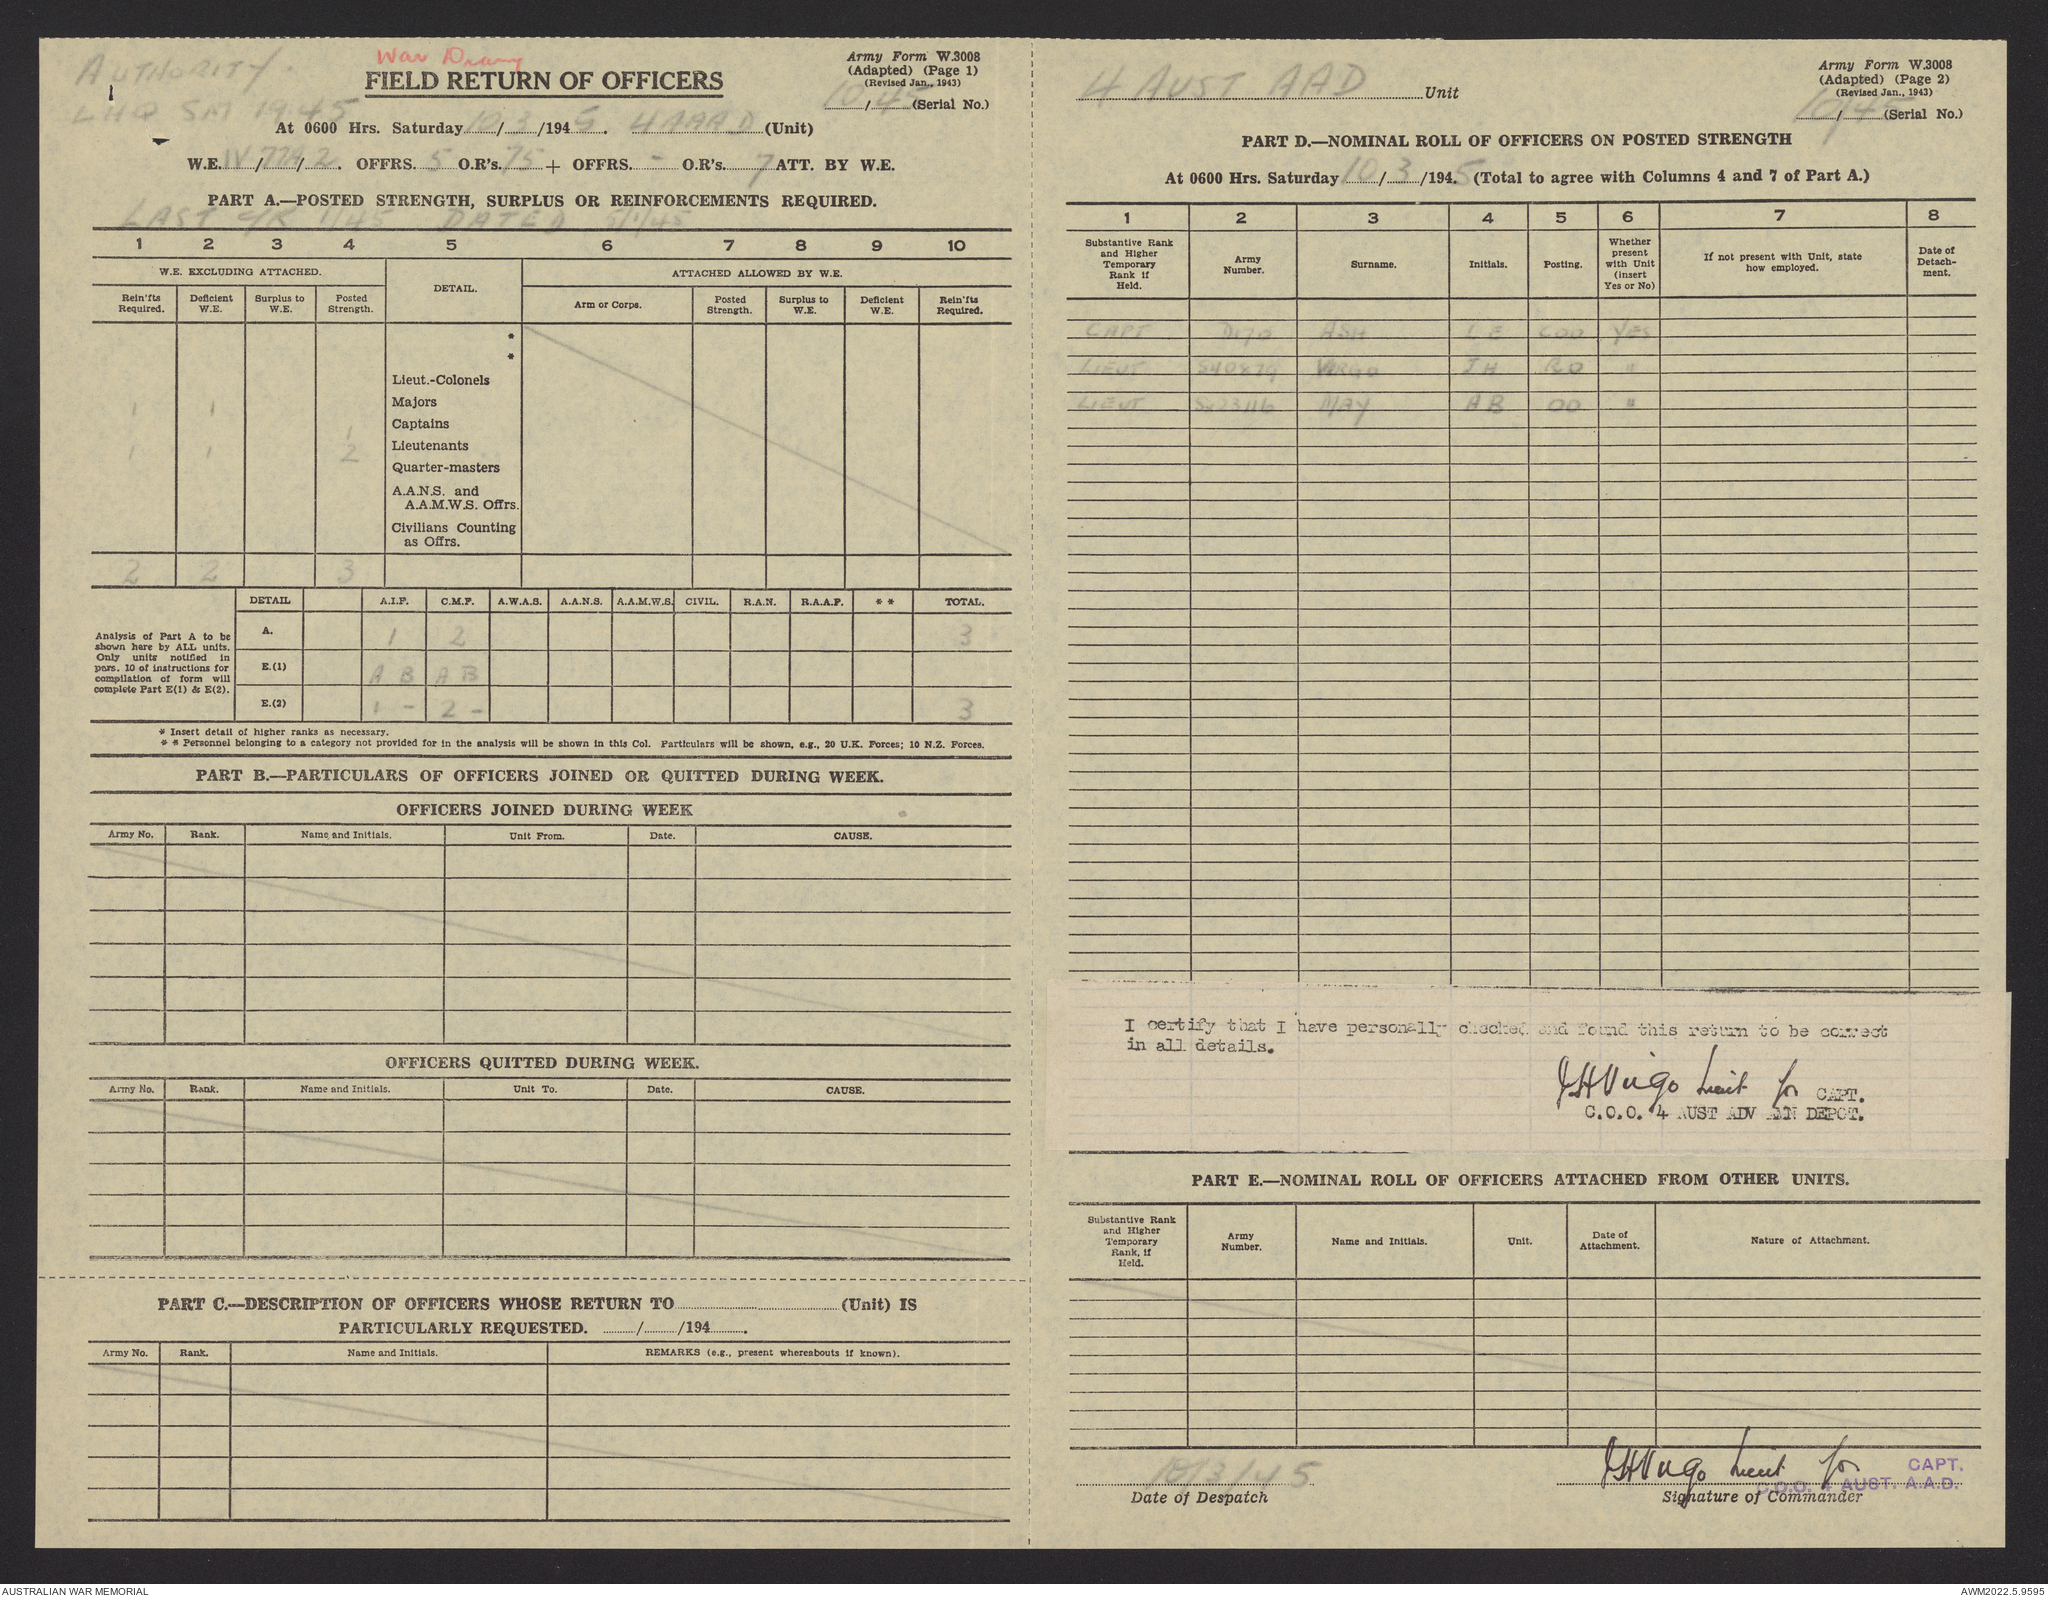 AUTHORITY.
LHQ SM 1945
War Diary
FIELD RETURN OF OFFICERS
Army Form W.3008
(Adapted) (Page 1)
(Revised Jan., 1943)
10/45 (Serial No.)
At 0600 Hrs. Saturday 10/3/1945. 4 AAAD (Unit)
W.E. IV/779/2. OFFRS. 5 O.R's. 75 + OFFRS. - O.R's. 7 ATT. BY W.E.
PART A.—POSTED STRENGTH, SURPLUS OR REINFORCEMENTS REQUIRED.
LAST C/R 1/45 DATED 5/1/45
1 2 3 4 5 6 7 8 9 10
W.E. EXCLUDING ATTACHED. DETAIL. ATTACHED ALLOWED BY W.E.
Rein'fts Required. Deficient W.E. Surplus to W.E. Posted Strength. Arm or Corps. Posted Strength. Surplus to W.E. Deficient W.E. Rein'fts Required.
*
*
Lieut.-Colonels
1 1 Majors
1 Captains
1 1 2 Lieutenants
Quarter-masters
A.A.N.S. and
A.A.M.W.S. Offrs.
Civilians Counting
as Offrs.
2 2 3
DETAIL A.I.F. C.M.F. A.W.A.S. A.A.N.S. A.A.M.W.S. CIVIL. R.A.N. R.A.A.F. * * TOTAL.
Analysis of Part A to be
shown here by ALL units.
Only units notified in
para. 10 of instructions for
compilation of form will
complete Part E(1) & E(2).
A. 1 2 3
E.(1) A B A B
E.(2) 1 - 2 - 3
* Insert detail of higher ranks as necessary.
* * Personnel belonging to a category not provided for in the analysis will be shown in this Col. Particulars will be shown, e.g., 20 U.K. Forces; 10 N.Z. Forces.
PART B.—PARTICULARS OF OFFICERS JOINED OR QUITTED DURING WEEK.
OFFICERS JOINED DURING WEEK
Army No. Rank. Name and Initials. Unit From. Date. CAUSE.
OFFICERS QUITTED DURING WEEK.
Army No. Rank. Name and Initials. Unit To. Date. CAUSE.
PART C.—DESCRIPTION OF OFFICERS WHOSE RETURN TO (Unit) IS
PARTICULARLY REQUESTED. / /194 .
Army No. Rank. Name and Initials. REMARKS (e.g., present whereabouts if known).
4 AUST AAD Unit
Army Form W.3008
(Adapted) (Page 2)
(Revised Jan., 1943)
10/45 (Serial No.)
PART D.—NOMINAL ROLL OF OFFICERS ON POSTED STRENGTH
At 0600 Hrs. Saturday 10/3/1945. (Total to agree with Columns 4 and 7 of Part A.)
1 2 3 4 5 6 7 8
Substantive Rank and Higher Temporary Rank if Held. Army Number. Surname. Initials. Posting. Whether present with Unit (insert Yes or No) If not present with Unit, state how employed. Date of Detach-ment.
CAPT ASH L E COO YES
LIEUT S40879 VIRGO J H RO "
LIEUT SX23116 MAY A B OO "
I certify that I have personally checked and found this return to be correct
in all details.
JHVirgo Lieut for CAPT.
C.O.O. 4 AUST ADV AMN DEPOT.
PART E.—NOMINAL ROLL OF OFFICERS ATTACHED FROM OTHER UNITS.
Substantive Rank and Higher Temporary Rank, if Held. Army Number. Name and Initials. Unit. Date of Attachment. Nature of Attachment.
10/3/45
JHVirgo Lieut for CAPT.
C.O.O. 4 AUST. A.A.D.
Date of Despatch
Signature of Commander
AUSTRALIAN WAR MEMORIAL
AWM2022.5.9595